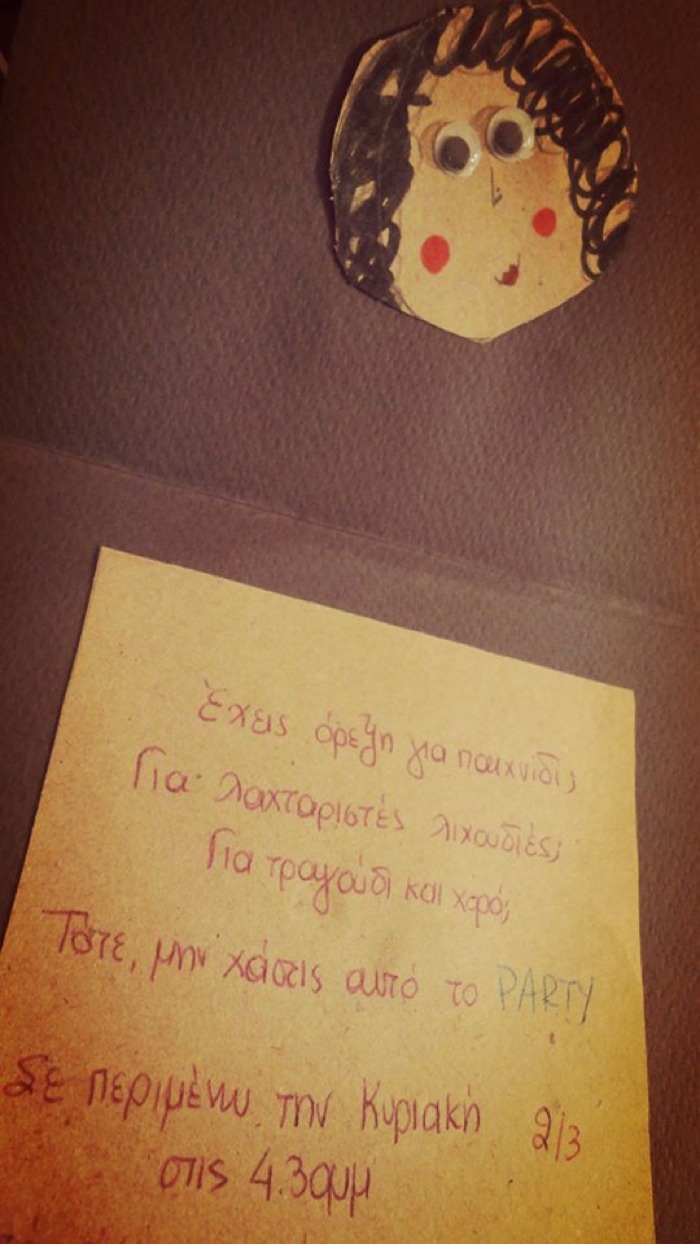 Έχεις όρεξη για παιχνίδι;
Για λαχταριστές λιχουδιές;
Για τραγούδι και χορό;
Τότε, μην χάσεις αυτό το PARTY
Σε περιμένω την Κυριακή 2/3
στις 4.30μμ